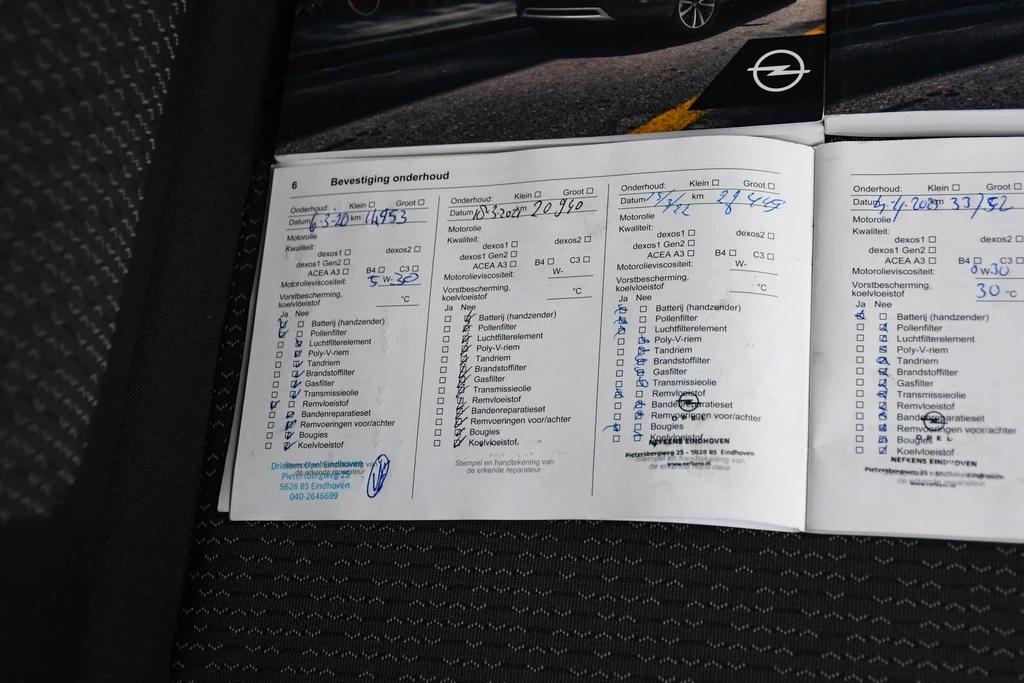 6 Bevestiging onderhoud
Onderhoud: Klein Groot
Datum 6-3-20 km 14953
Motorolie
Kwaliteit:
dexos1 dexos2
dexos1 Gen2
ACEA A3 B4 C3
Motorolieviscositeit: 5 W-30
Vorstbescherming,
koelvloeistof °C
Ja Nee
Batterij (handzender)
Pollenfilter
Luchtfilterelement
Poly-V-riem
Tandriem
Brandstoffilter
Gasfilter
Transmissieolie
Remvloeistof
Bandenreparatieset
Remvoeringen voor/achter
Bougies
Koelvloeistof
Driessen Opel Eindhoven
Pietersbergweg 25
5628 BS Eindhoven
040-2646699
Onderhoud: Klein Groot
Datum 10-3-2021 km 20940
Motorolie
Kwaliteit:
dexos1 dexos2
dexos1 Gen2
ACEA A3 B4 C3
Motorolieviscositeit: W-
Vorstbescherming,
koelvloeistof °C
Ja Nee
Batterij (handzender)
Pollenfilter
Luchtfilterelement
Poly-V-riem
Tandriem
Brandstoffilter
Gasfilter
Transmissieolie
Remvloeistof
Bandenreparatieset
Remvoeringen voor/achter
Bougies
Koelvloeistof
Stempel en handtekening van
de erkende reparateur
Onderhoud: Klein Groot
Datum km
Motorolie
Kwaliteit:
dexos1 dexos2
dexos1 Gen2
ACEA A3 B4 C3
Motorolieviscositeit: W-
Vorstbescherming,
koelvloeistof °C
Ja Nee
Batterij (handzender)
Pollenfilter
Luchtfilterelement
Poly-V-riem
Tandriem
Brandstoffilter
Gasfilter
Transmissieolie
Remvloeistof
Bandenreparatieset
Remvoeringen voor/achter
OPEL
Bougies
Koelvloeistof
NEFKENS EINDHOVEN
Pietersbergweg 25 - 5628 BS Eindhoven
Stempel en handtekening van
de erkende reparateur
www.nefkens.nl
Onderhoud: Klein Groot
Datum km
Motorolie
Kwaliteit:
dexos1 dexos2
dexos1 Gen2
ACEA A3 B4 C3
Motorolieviscositeit: 0 W-30
Vorstbescherming,
koelvloeistof 30 °C
Ja Nee
Batterij (handzender)
Pollenfilter
Luchtfilterelement
Poly-V-riem
Tandriem
Brandstoffilter
Gasfilter
Transmissieolie
Remvloeistof
Bandenreparatieset
Remvoeringen voor/achter
OPEL
Bougies
Koelvloeistof
NEFKENS EINDHOVEN